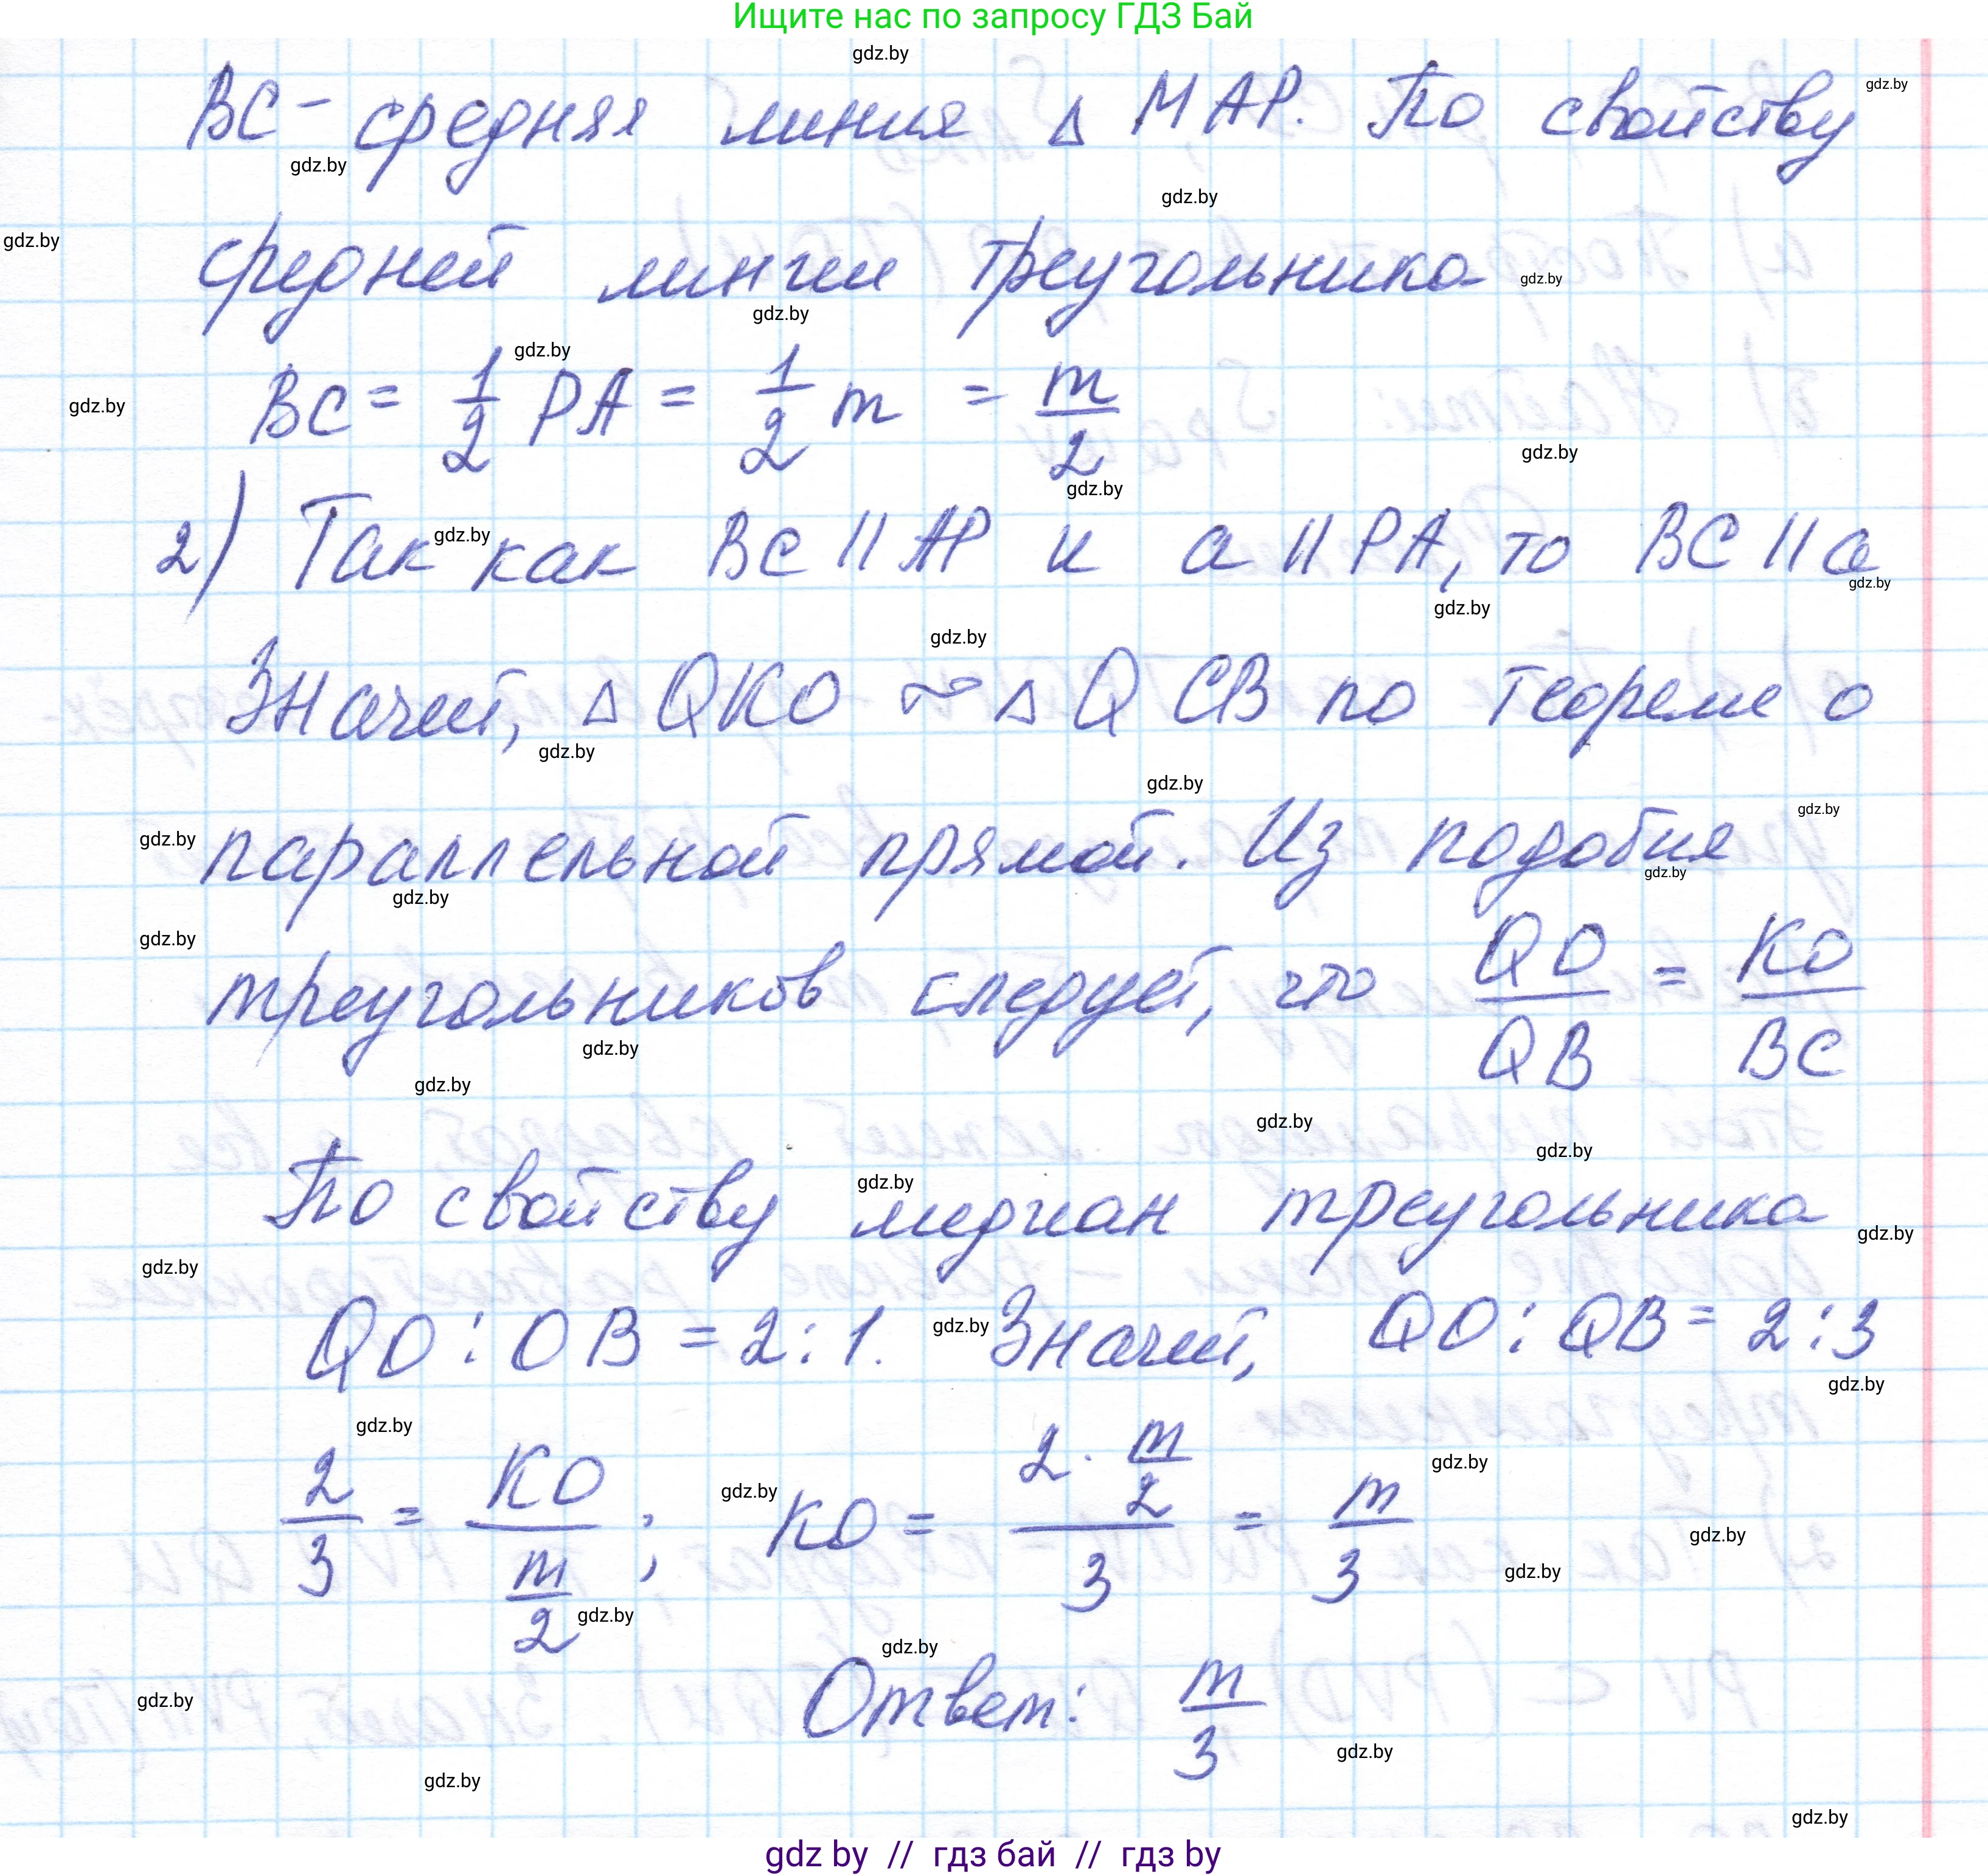 Ищите нас по запросу ГДЗ Бай
gdz.by
BC - средняя линия △ MAP. По свойству
средней линии треугольника
BC = 1/2 PA = 1/2 m = m/2
2) Так как BC || AP и a || PA, то BC || a
Значит, △ QKO ~ △ QCB по теореме о
параллельной прямой. Из подобия
треугольников следует, что QO/QB = KO/BC
По свойству медиан треугольника
QO : OB = 2 : 1. Значит, QO : QB = 2 : 3
2/3 = KO/(m/2) ; KO = (2 · m/2)/3 = m/3
Ответ: m/3
gdz by // гдз бай // гдз by